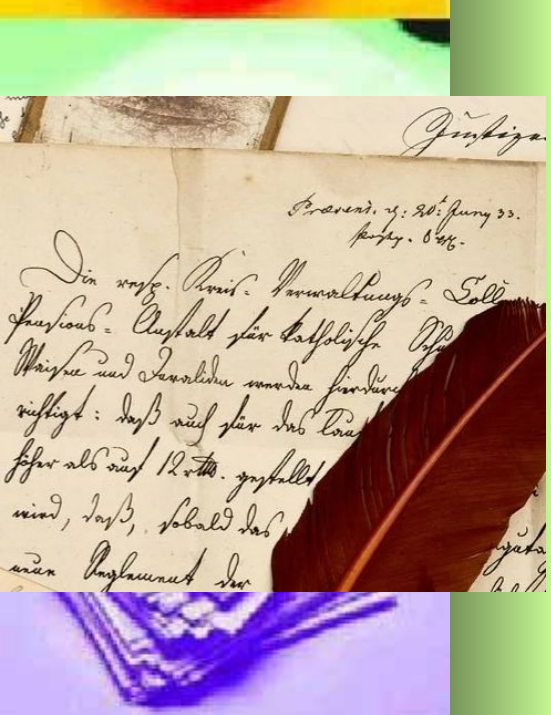 Justize
Præsent. d: 20t Juny 33.
Die resp. Kreis- Verwaltungs- Coll
Pensions- Anstalt für katholische Schu
Waisen und Invaliden werden hierdurch
richtigt: daß auch für das lau
höher als auf 12 gestellt
wird, daß, sobald das
neue Reglement der